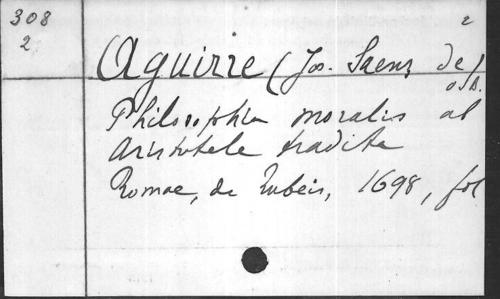 308 2
2
Aguirre (Jos. Saenz de)
O.S.B.
Philosophia moralis ab
Aristotele tradita
Romae, de Rubeis, 1698, fol